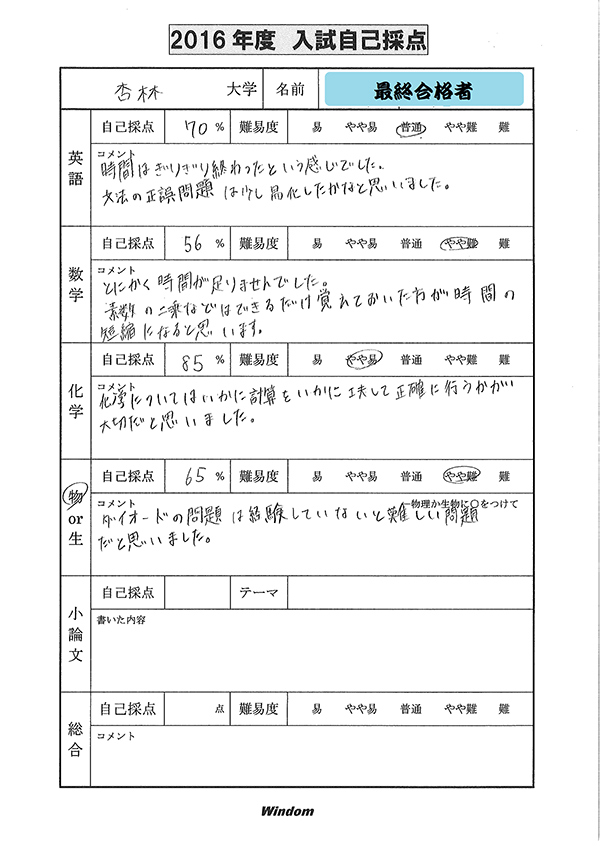 2016年度 入試自己採点
杏林 大学 名前 最終合格者
英語 自己採点 70 % 難易度 易 やや易 普通 やや難 難
コメント
時間はぎりぎり終わったという感じでした。
文法の正誤問題は少し易化したかなと思いました。
数学 自己採点 56 % 難易度 易 やや易 普通 やや難 難
コメント
とにかく時間が足りませんでした。
素数の二乗などはできるだけ覚えておいた方が時間の
短縮になると思います。
化学 自己採点 85 % 難易度 易 やや易 普通 やや難 難
コメント
化学についてはいかに計算をいかに工夫して正確に行うかが
大切だと思いました。
物or生 自己採点 65 % 難易度 易 やや易 普通 やや難 難
コメント ←物理か生物に○をつけて
ダイオードの問題は経験していないと難しい問題
だと思いました。
小論文 自己採点 テーマ
書いた内容
総合 自己採点 点 難易度 易 やや易 普通 やや難 難
コメント
Windom